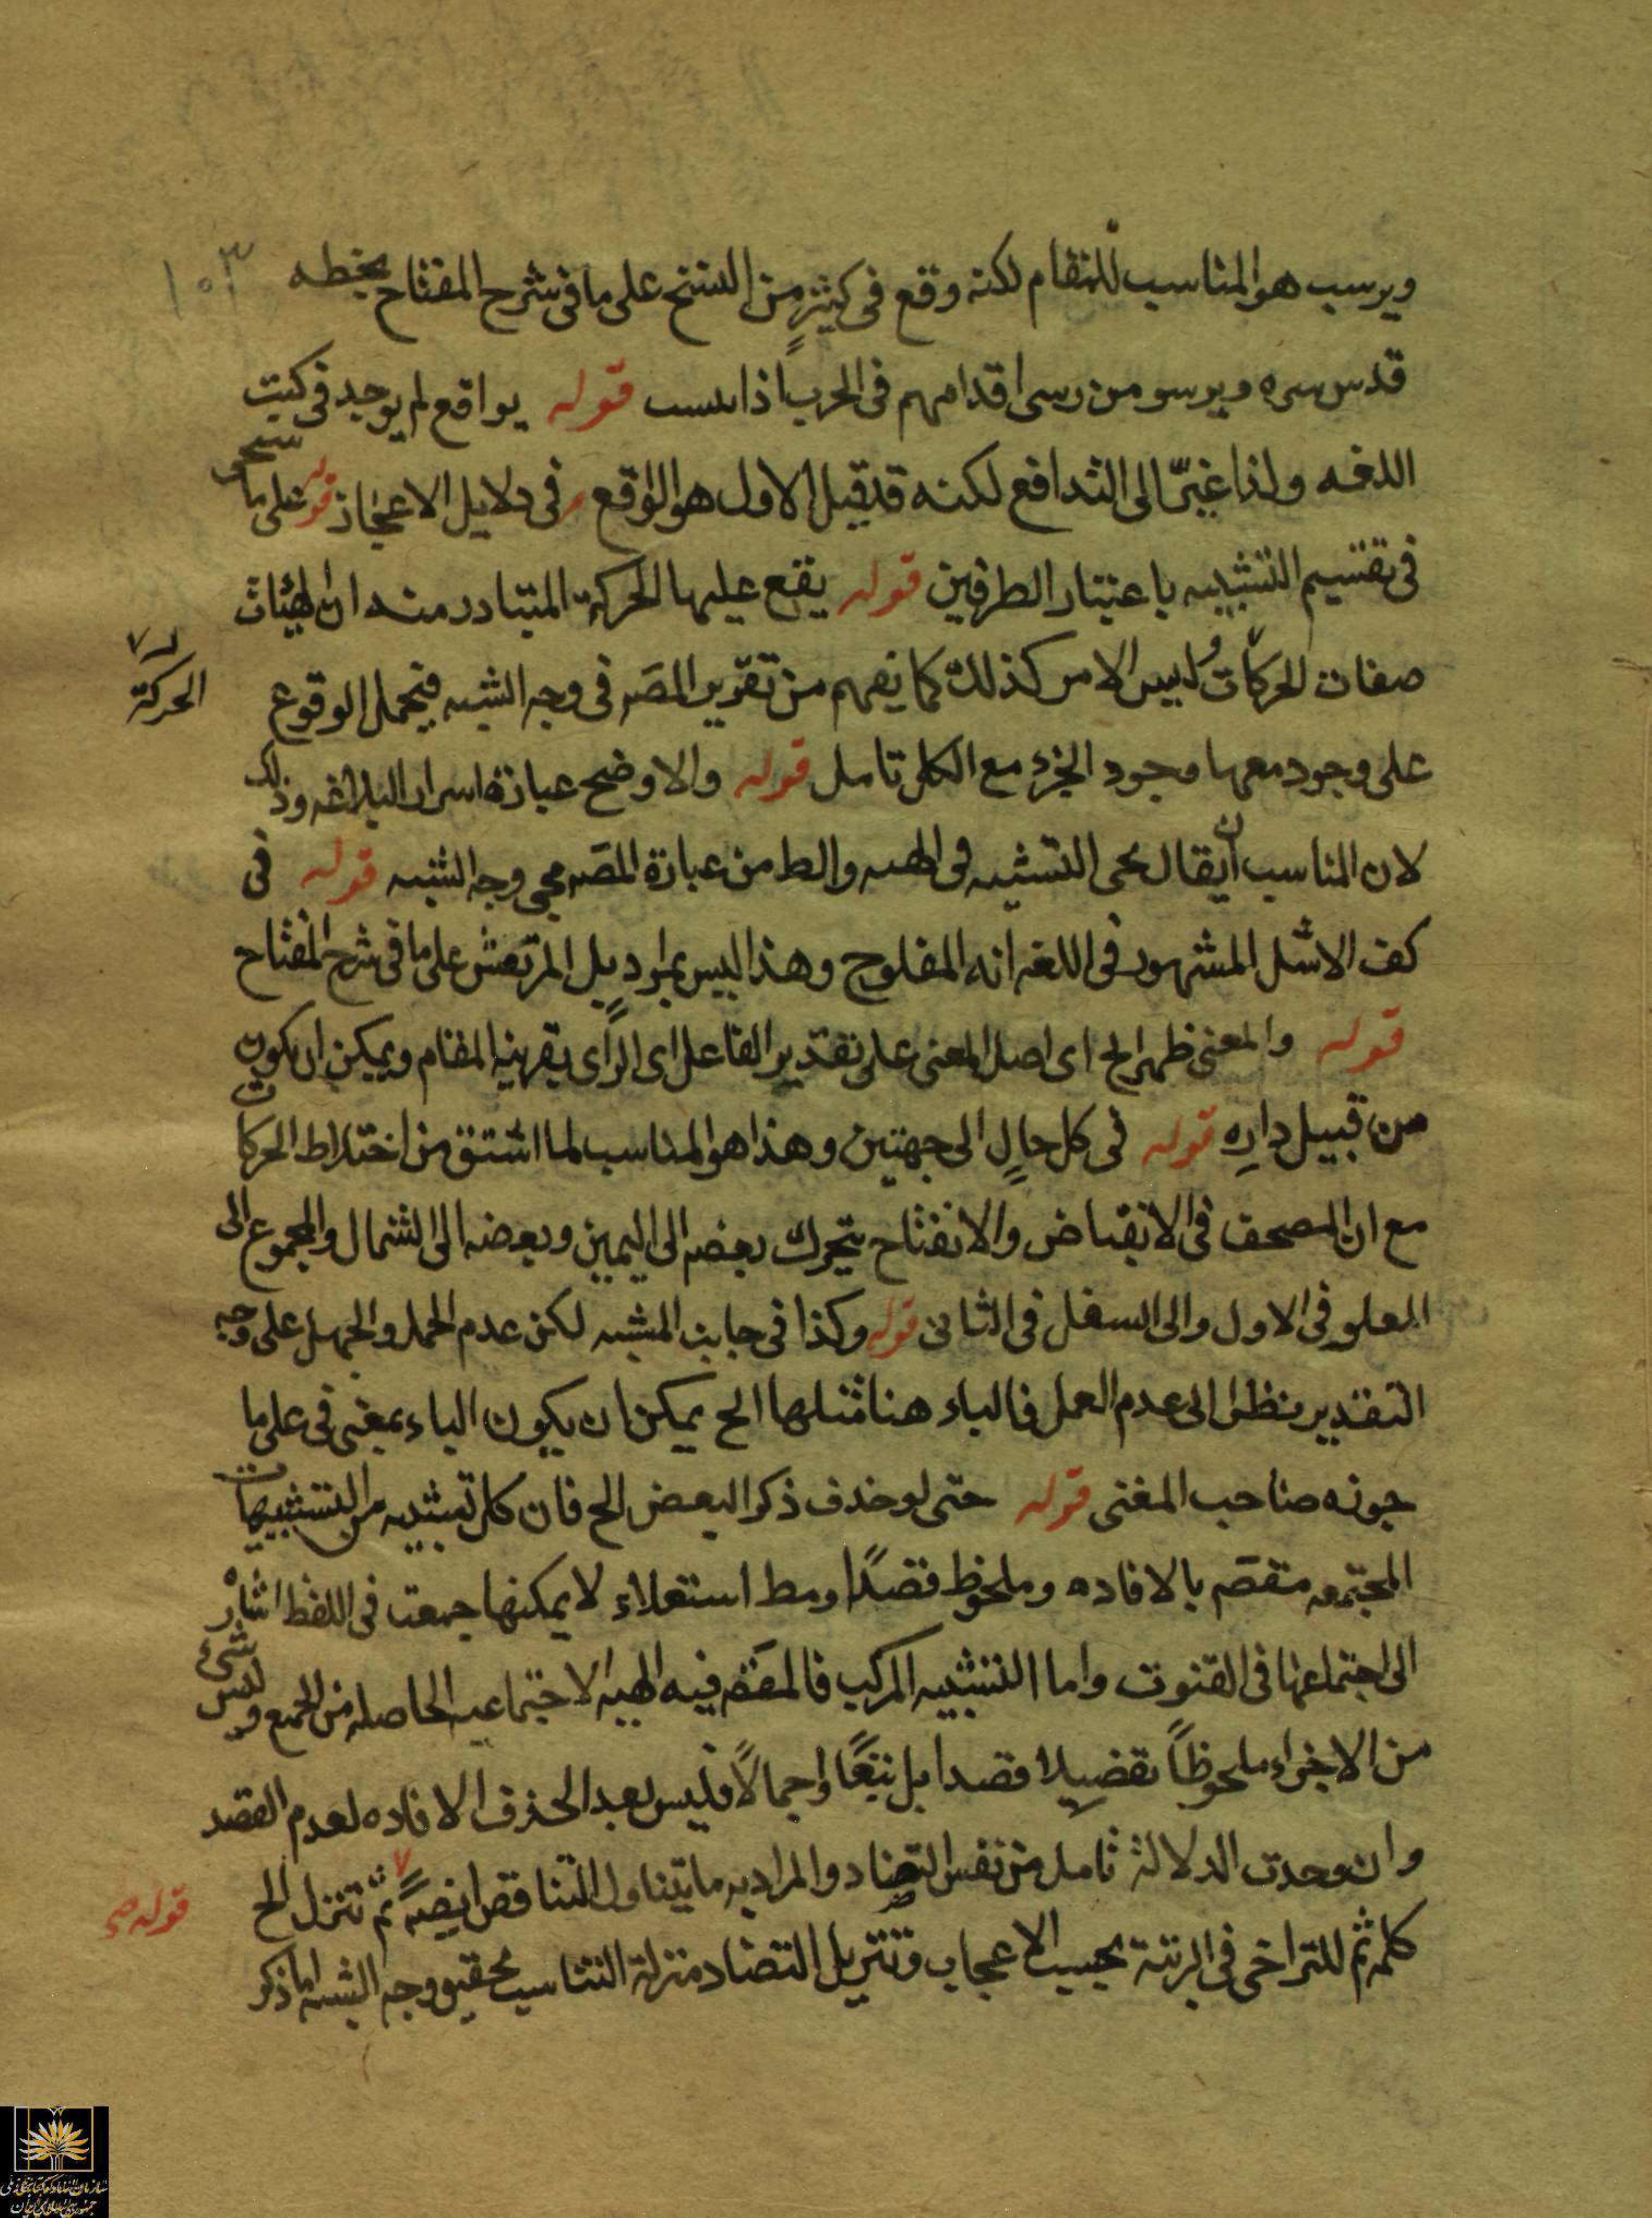 ١٠٣
ويرسب هو المناسب للمقام لكنه وقع فى كثيرٍ من النسخ على ما فى شرح المفتاح بخطه
قدس سره ويرسو من رسى اقدامهم فى الحرب اذا قوله يواقع لم يوجد فى كتب
اللغه ولذا غيّر الى التدافع لكنه قد قيل الاول هو الواقع فى دلايل الاعجاز قوله على ما سيجئ
فى تقسيم التشبيه باعتبار الطرفين قوله يقع عليها الحركة المتبادر منه ان الهيئات
صفات للحركات وليس الامر كذلك كما يفهم من تقرير المصَ فى وجه الشبه فيحمل الوقوع
الحركة
على وجود معها وجود الجزء مع الكل تامل قوله والاوضح عبارة اسرار البلاغه وذلك
لان المناسب ان يقال يجى التشبيه فى الهيه والظ من عبارة المصَ مجى وجه الشبه قوله فى
كف الاشل المشهور فى اللغه انه المفلوج وهذا ليس بمراد بل المرتعش على ما فى شرح المفتاح
قوله والمعنى ظهر الخ اى اصل المعنى على تقدير الفاعل اى الرأى بقرينة المقام ويمكن ان يكون
من قبيل داره قوله فى كل حالٍ الى جهتين وهذا هو المناسب لما اشتق من اختلاط الحركات
مع ان المصحف فى الانقباض والانفتاح يتحرك بعضه الى اليمين وبعضه الى الشمال والمجموع الى
العلو فى الاول والى السفل فى الثانى قوله وكذا فى جانب المشبه لكن عدم الحمل والجهل على وجه
التقدير منظرا الى عدم العمل فالباء هنا مثلها الخ يمكن ان يكون الباء بمعنى فى على ما
جوزه صاحب المغنى قوله حتى لو حذف ذكر البعض الخ فان كل تشبيه من التشبيهات
المجتمعه مقصَ بالافاده وملحوظ قصدًا ومط استقلاء لا يمكنها جمعت فى اللفظ اشارة
الى اجتماعها فى القنوت واما التشبيه المركب فالمقصَ فيه الهيه الاجتماعيه الحاصله من الجمع وليس شئ
من الاجزاء ملحوظاً تفضيلا قصدا بل تبعًا واجمالًا فليس بعد الحذف الا فاده لعدم القصد
وان وجدت الدلالة تامل من نفس التضاد والمراد به ما يتناول التناقض ايضًا ثم تنزل الخ
قوله صح
كلمه ثم للتراخى فى الرتبة بحسب الاعجاب وتنزيل التضاد منزلة التناسب تحقيق وجه الشبه اما ذكر